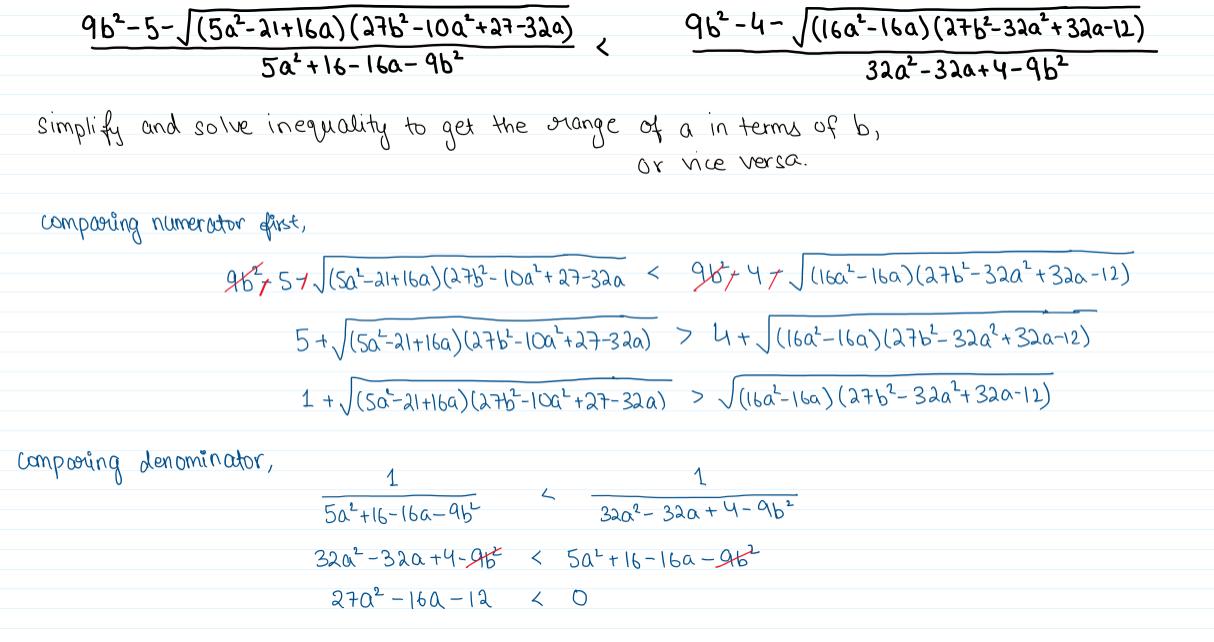 (9b² - 5 - √((5a² - 21 + 16a)(27b² - 10a² + 27 - 32a))) / (5a² + 16 - 16a - 9b²) < (9b² - 4 - √((16a² - 16a)(27b² - 32a² + 32a - 12))) / (32a² - 32a + 4 - 9b²)
simplify and solve inequality to get the range of a in terms of b,
or vice versa.
comparing numerator first,
9b² - 5 - √((5a² - 21 + 16a)(27b² - 10a² + 27 - 32a < 9b² - 4 - √((16a² - 16a)(27b² - 32a² + 32a - 12))
5 + √((5a² - 21 + 16a)(27b² - 10a² + 27 - 32a)) > 4 + √((16a² - 16a)(27b² - 32a² + 32a - 12))
1 + √((5a² - 21 + 16a)(27b² - 10a² + 27 - 32a)) > √((16a² - 16a)(27b² - 32a² + 32a - 12))
comparing denominator,
1 / (5a² + 16 - 16a - 9b²) < 1 / (32a² - 32a + 4 - 9b²)
32a² - 32a + 4 - 9b² < 5a² + 16 - 16a - 9b²
27a² - 16a - 12 < 0